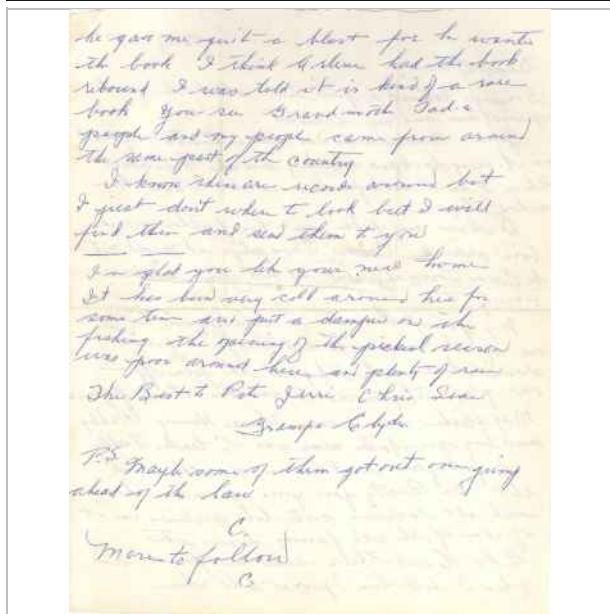 he gave me quit a blast for he wante
the book I think Arlene had the book
rebound I was told it is kind of a rare
book You see Grandmoth Dad's
people and my people came from around
the same part of the country
I know there are records around but
I just don't when to look but I will
find them and send them to you
I'm glad you like your new home
It has been very cold around here for
some time and put a damper on the
fishing the opening of the pickerel season
was poor around here and plenty of rain
The Best to Pete Jerri Chris Sean
Grampa Clyde
P.S Maybe some of them got out one jump
ahead of the law.
C.
More to follow
C